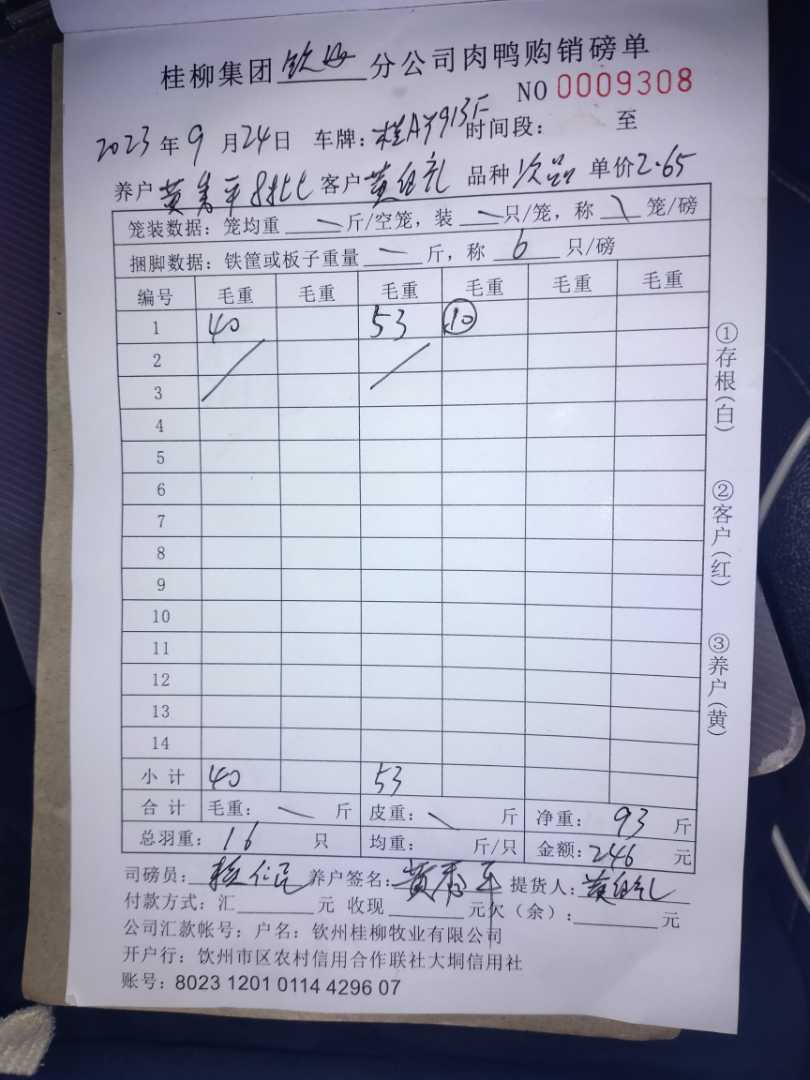 桂柳集团钦州分公司肉鸭购销磅单
NO 0009308
2023年9月24日 车牌：桂AY913F 时间段： 至
养户 黄秀平8批 客户 黄组礼 品种 次品 单价 2.65
笼装数据：笼均重 一 斤/空笼，装 一 只/笼，称 \ 笼/磅
捆脚数据：铁筐或板子重量 一 斤，称 6 只/磅
编号 毛重 毛重 毛重 毛重 毛重 毛重
1 40 53 10
2
3
4
5
6
7
8
9
10
11
12
13
14
小计 40 53
合计 毛重： \ 斤 皮重： \ 斤 净重： 93 斤
总羽重： 16 只 均重： 斤/只 金额：246 元
司磅员： 养户签名：黄秀平 提货人：黄组礼
付款方式：汇 元 收现 元欠（余）： 元
公司汇款帐号：户名：钦州桂柳牧业有限公司
开户行：钦州市区农村信用合作联社大垌信用社
账号：8023 1201 0114 4296 07
①存根(白)
②客户(红)
③养户(黄)